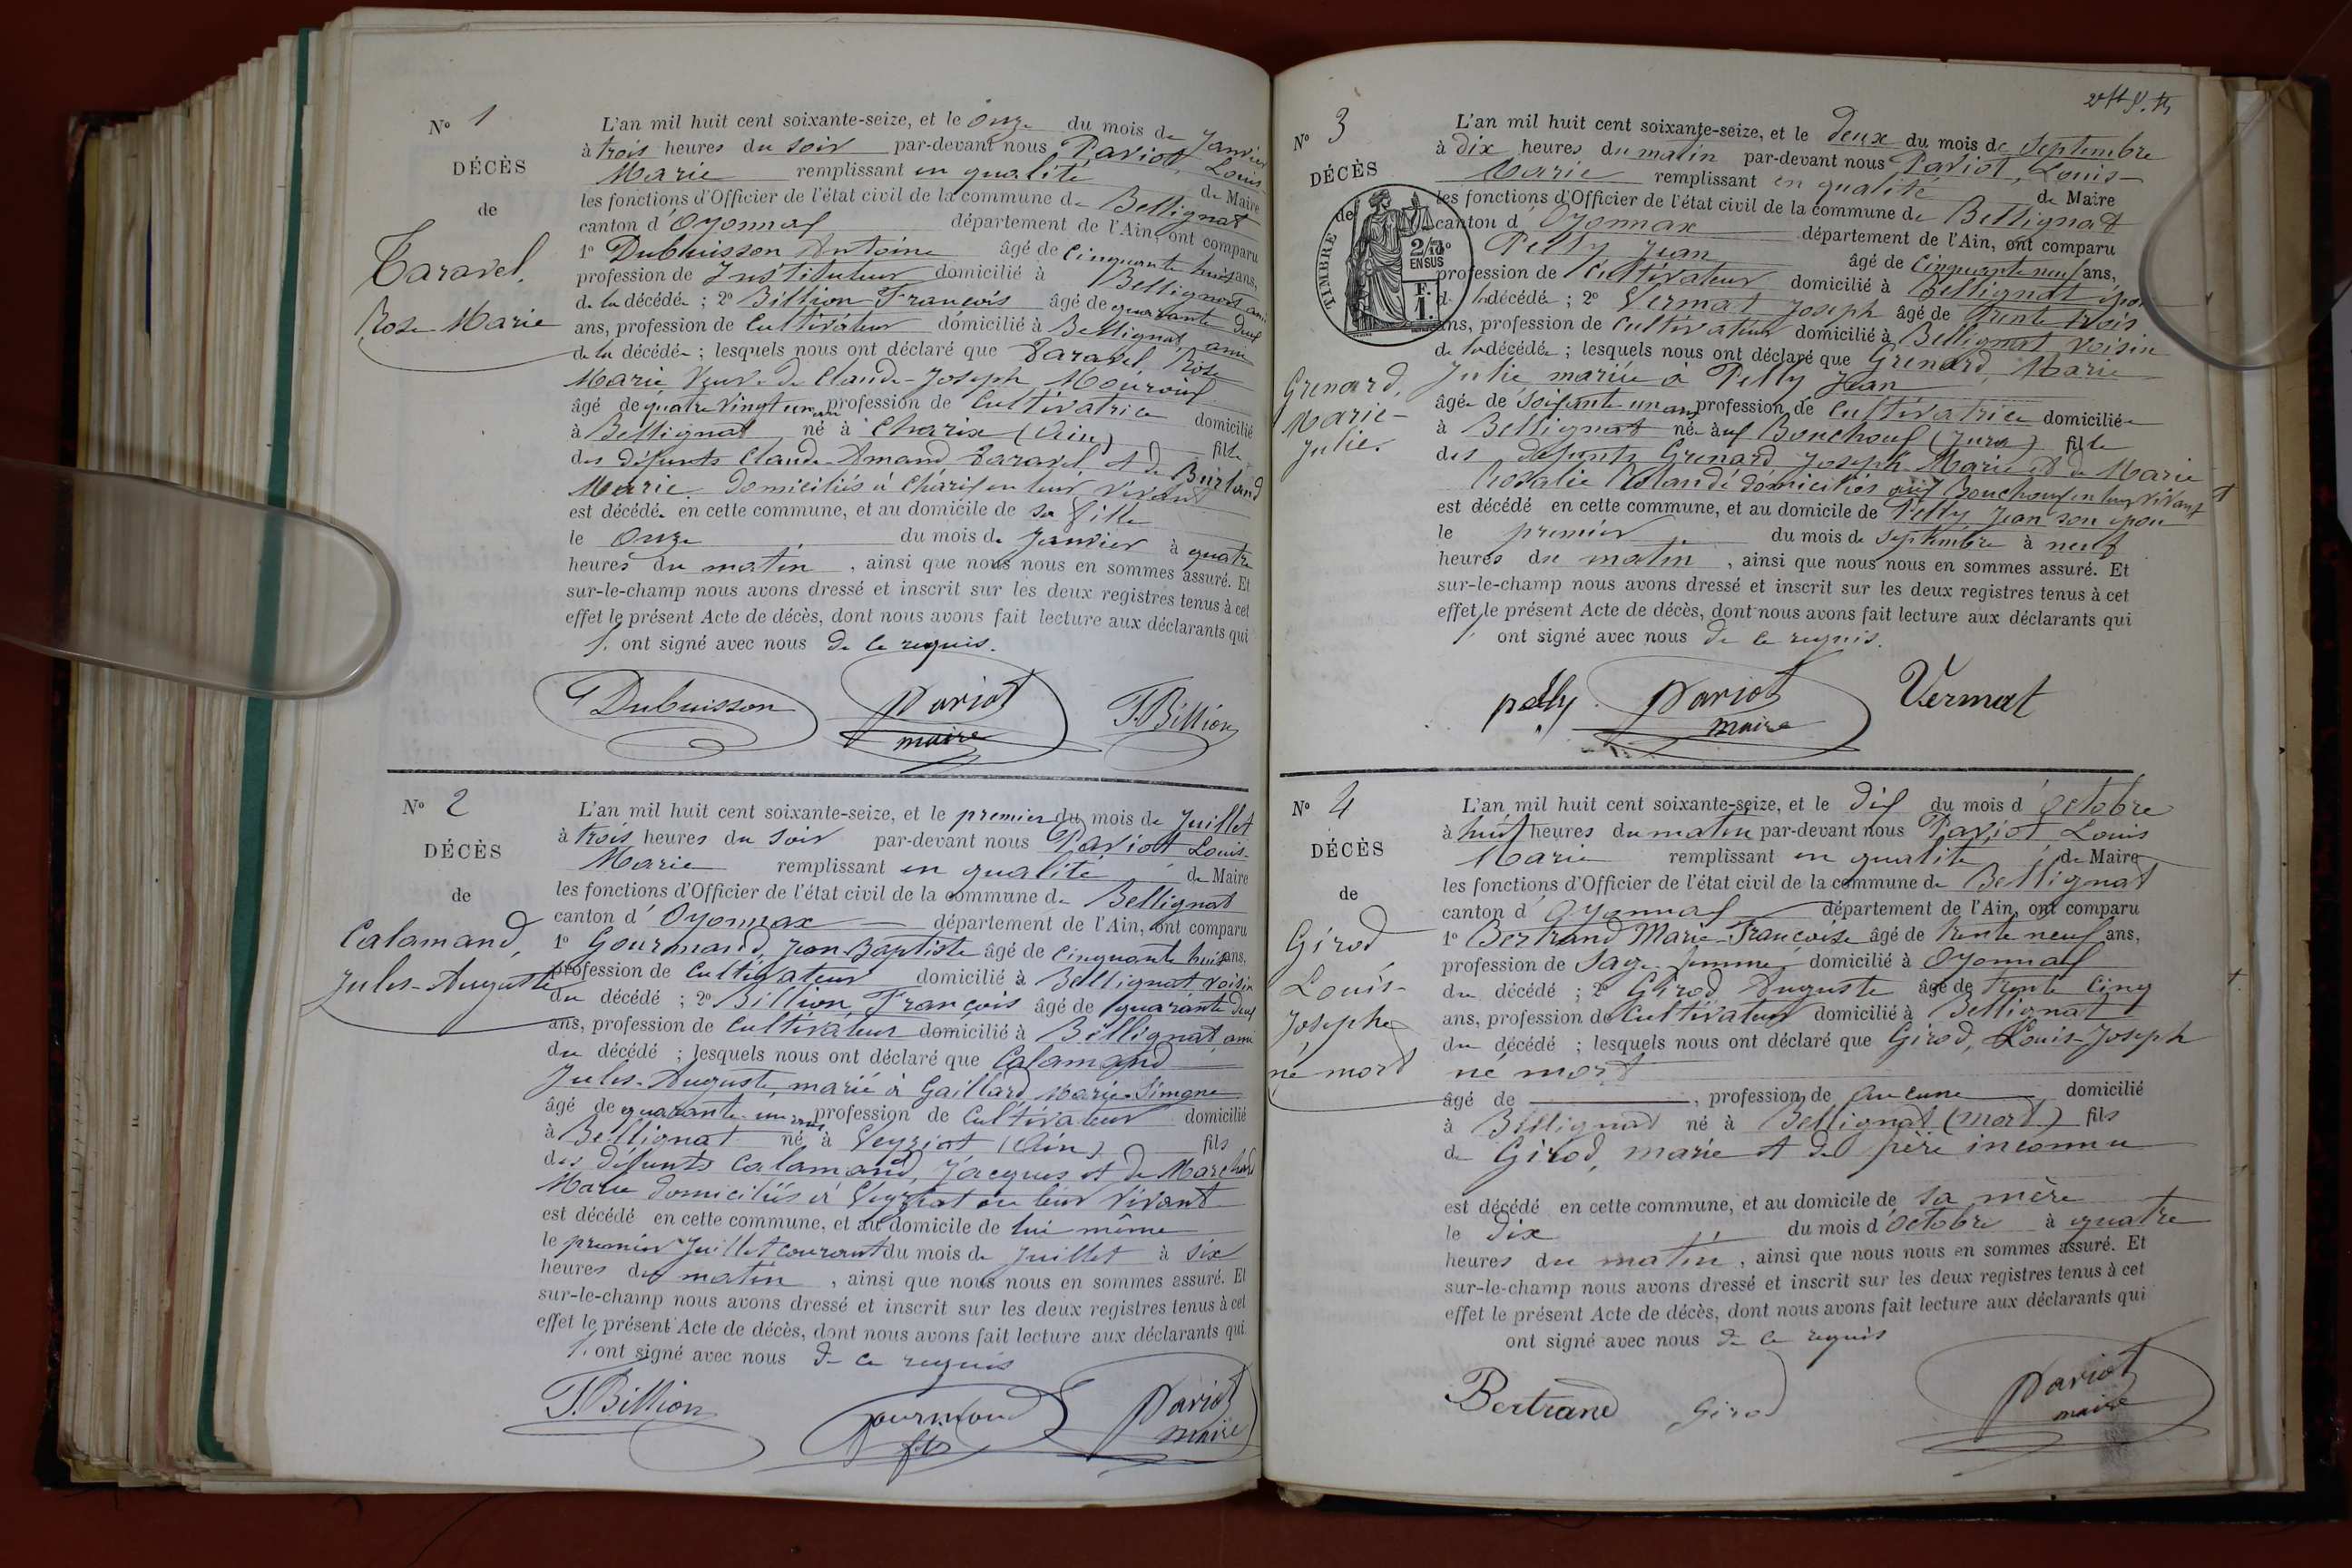 N° 1
DÉCÈS
de
Taravel,
Rose Marie
L'an mil huit cent soixante-seize, et le onze du mois de Janvier
à trois heures du soir par-devant nous Pariot, Louis-
Marie remplissant en qualité de Maire
les fonctions d'Officier de l'état civil de la commune de Bellignat
canton d'Oyonnax département de l'Ain, ont comparu
1° Dubuisson Antoine âgé de cinquante huit ans,
profession de Instituteur domicilié à Bellignat ami
de la décédée ; 2° Billion François âgé de quarante deux
ans, profession de Cultivateur domicilié à Bellignat, ami
de la décédée ; lesquels nous ont déclaré que Taravel Rose
Marie Veuve de Claude-Joseph
âgé de quatre vingt un ans profession de Cultivatrice domicilié
à Bellignat né à Charix (Ain) fille
des défunts Claude-Amand Taravel, et de Burland
Marie domiciliés à Charix en leur vivant
est décédée en cette commune, et au domicile de sa fille
le onze du mois de Janvier à quatre
heures du matin, ainsi que nous nous en sommes assuré. Et
sur-le-champ nous avons dressé et inscrit sur les deux registres tenus à cet
effet le présent Acte de décès, dont nous avons fait lecture aux déclarants qui
ont signé avec nous de ce requis.
Dubuisson Pariot maire F. Billion
N° 2
DÉCÈS
de
Calamand,
Jules-Auguste
L'an mil huit cent soixante-seize, et le premier du mois de Juillet
à trois heures du soir par-devant nous Pariot Louis-
Marie remplissant en qualité de Maire
les fonctions d'Officier de l'état civil de la commune de Bellignat
canton d'Oyonnax département de l'Ain, ont comparu
1° Gourmand, Jean-Baptiste âgé de cinquante huit ans,
profession de Cultivateur domicilié à Bellignat voisin
du décédé ; 2° Billion François âgé de quarante deux
ans, profession de Cultivateur domicilié à Bellignat, ami
du décédé ; lesquels nous ont déclaré que Calamand
Jules-Auguste, marié à Gaillard Marie-Simone
âgé de quarante-un ans profession de Cultivateur domicilié
à Bellignat né à Veyziat (Ain) fils
des défunts Calamand, Jacques et de Marchand
Marie domiciliés à Veyziat en leur vivant
est décédé en cette commune, et au domicile de lui même
le premier Juillet courant du mois de Juillet à six
heures du matin, ainsi que nous nous en sommes assuré. Et
sur-le-champ nous avons dressé et inscrit sur les deux registres tenus à cet
effet le présent Acte de décès, dont nous avons fait lecture aux déclarants qui
ont signé avec nous de ce requis
F. Billion Gourmand Pariot maire
N° 3
DÉCÈS
de
TIMBRE
2/10°
EN SUS
F.
1.
Grenard,
Marie-
Julie.
L'an mil huit cent soixante-seize, et le deux du mois de Septembre
à dix heures du matin par-devant nous Pariot, Louis-
Marie remplissant en qualité de Maire
les fonctions d'Officier de l'état civil de la commune de Bellignat
canton d'Oyonnax département de l'Ain, ont comparu
1° Pelly Jean âgé de cinquante neuf ans,
profession de Cultivateur domicilié à Bellignat époux
de la décédée ; 2° Vermat Joseph âgé de trente trois
ans, profession de Cultivateur domicilié à Bellignat voisin
de la décédée ; lesquels nous ont déclaré que Grenard, Marie
Julie mariée à Pelly Jean
âgée de soixante un ans profession de Cultivatrice domiciliée
à Bellignat née aux Bouchoux (Jura) fille
des défunts Grenard Joseph-Marie et de Marie
Rosalie domiciliés aux Bouchoux en leur vivant
est décédé en cette commune, et au domicile de Pelly Jean son époux
le premier du mois de septembre à neuf
heures du matin, ainsi que nous nous en sommes assuré. Et
sur-le-champ nous avons dressé et inscrit sur les deux registres tenus à cet
effet le présent Acte de décès, dont nous avons fait lecture aux déclarants qui
ont signé avec nous de ce requis.
pelly Pariot maire Vermat
N° 4
DÉCÈS
de
Girod
Louis-
Joseph
né mort
L'an mil huit cent soixante-seize, et le dix du mois d'octobre
à huit heures du matin par-devant nous Pariot Louis
Marie remplissant en qualité de Maire
les fonctions d'Officier de l'état civil de la commune de Bellignat
canton d'Oyonnax département de l'Ain, ont comparu
1° Bertrand Marie-Françoise âgé de trente neuf ans,
profession de Sage femme domicilié à Oyonnax
du décédé ; 2° Girod Auguste âgé de trente cinq
ans, profession de Cultivateur domicilié à Bellignat
du décédé ; lesquels nous ont déclaré que Girod, Louis-Joseph
né mort
âgé de , profession de aucune domicilié
à Bellignat né à Bellignat (mort) fils
de Girod, marie et de père inconnu
est décédé en cette commune, et au domicile de sa mère
le dix du mois d'octobre à quatre
heures du matin, ainsi que nous nous en sommes assuré. Et
sur-le-champ nous avons dressé et inscrit sur les deux registres tenus à cet
effet le présent Acte de décès, dont nous avons fait lecture aux déclarants qui
ont signé avec nous de ce requis
Bertrand Girod Pariot maire